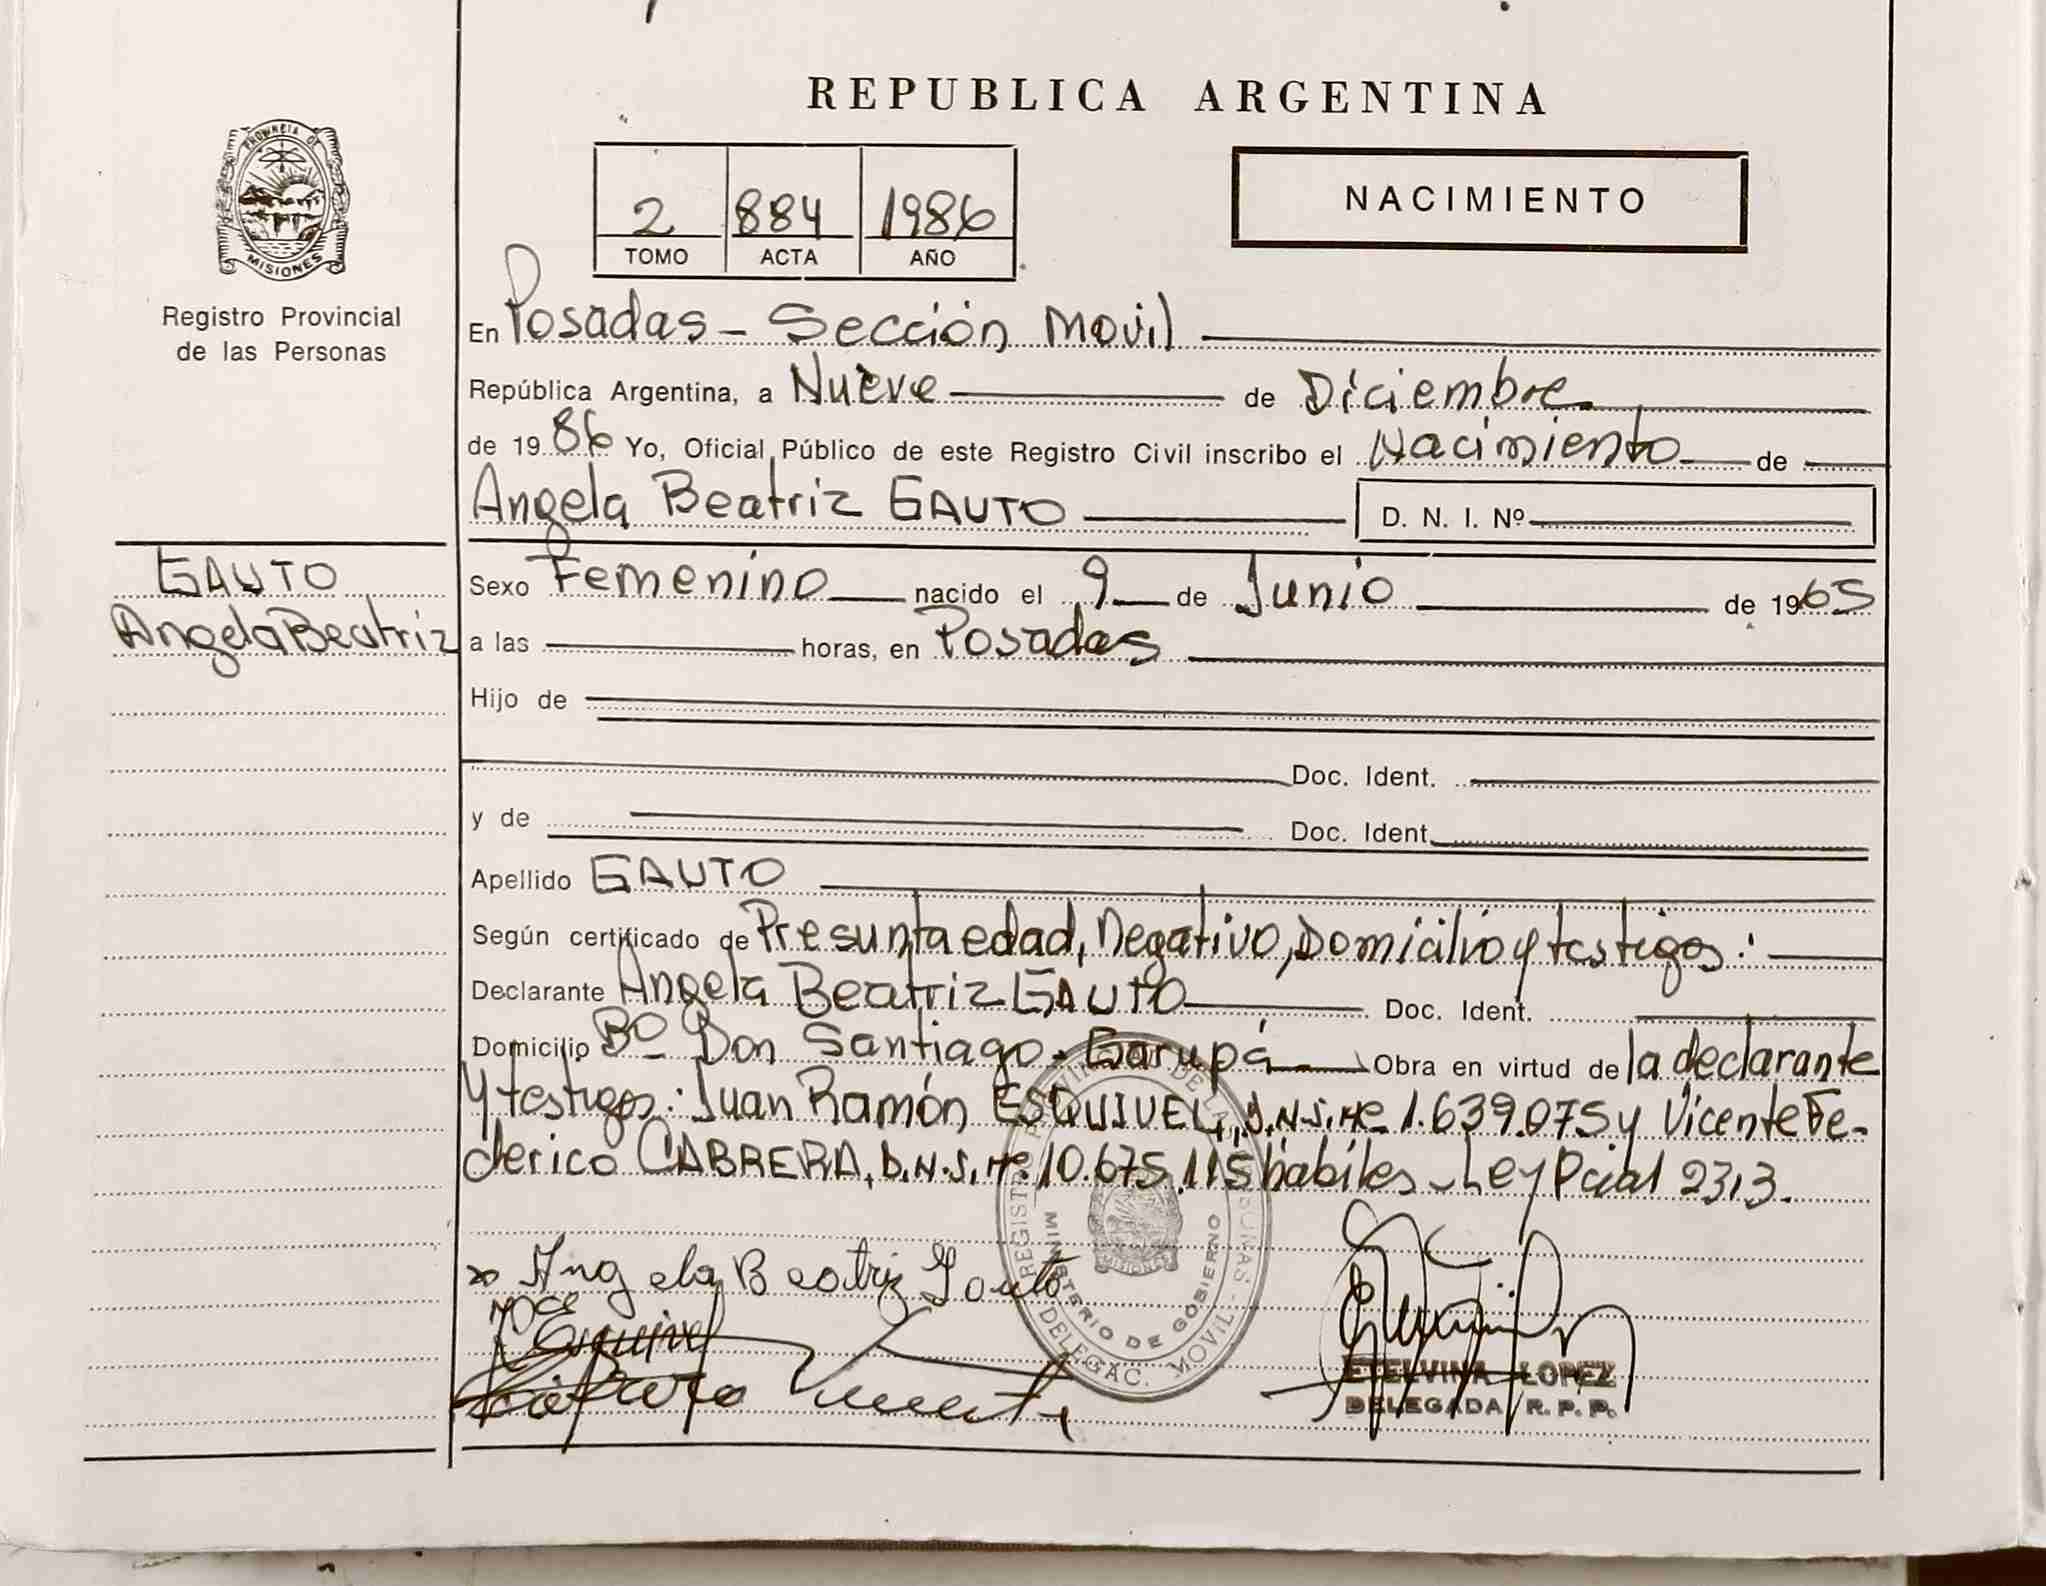 REPUBLICA ARGENTINA
PROVINCIA DE
MISIONES
Registro Provincial
de las Personas
2 884 1986
TOMO ACTA AÑO
NACIMIENTO
En Posadas - Sección Movil
República Argentina, a Nueve de Diciembre
de 1986 Yo, Oficial Público de este Registro Civil inscribo el Nacimiento de
Angela Beatriz GAUTO D. N. I. Nº
GAUTO
Angela Beatriz
Sexo Femenino nacido el 9 de Junio de 1965
a las horas, en Posadas
Hijo de
Doc. Ident.
y de Doc. Ident.
Apellido GAUTO
Según certificado de Presunta edad, Negativo, Domicilio y testigos:
Declarante Angela Beatriz GAUTO Doc. Ident.
Domicilio Bº Don Santiago - Garupá Obra en virtud de la declarante
y testigos: Juan Ramón ESQUIVEL, 1.639.075 y Vicente Fe-
derico CABRERA, 10.675.115 habiles - Ley Pcial 2313.
Angela Beatriz Gauto
Esquivel
REGISTRO PROVINCIAL DE LAS PERSONAS
MINISTERIO DE GOBIERNO
DELEGAC. MOVIL
MISIONES
ETELVINA LOPEZ
DELEGADA R. P. P.